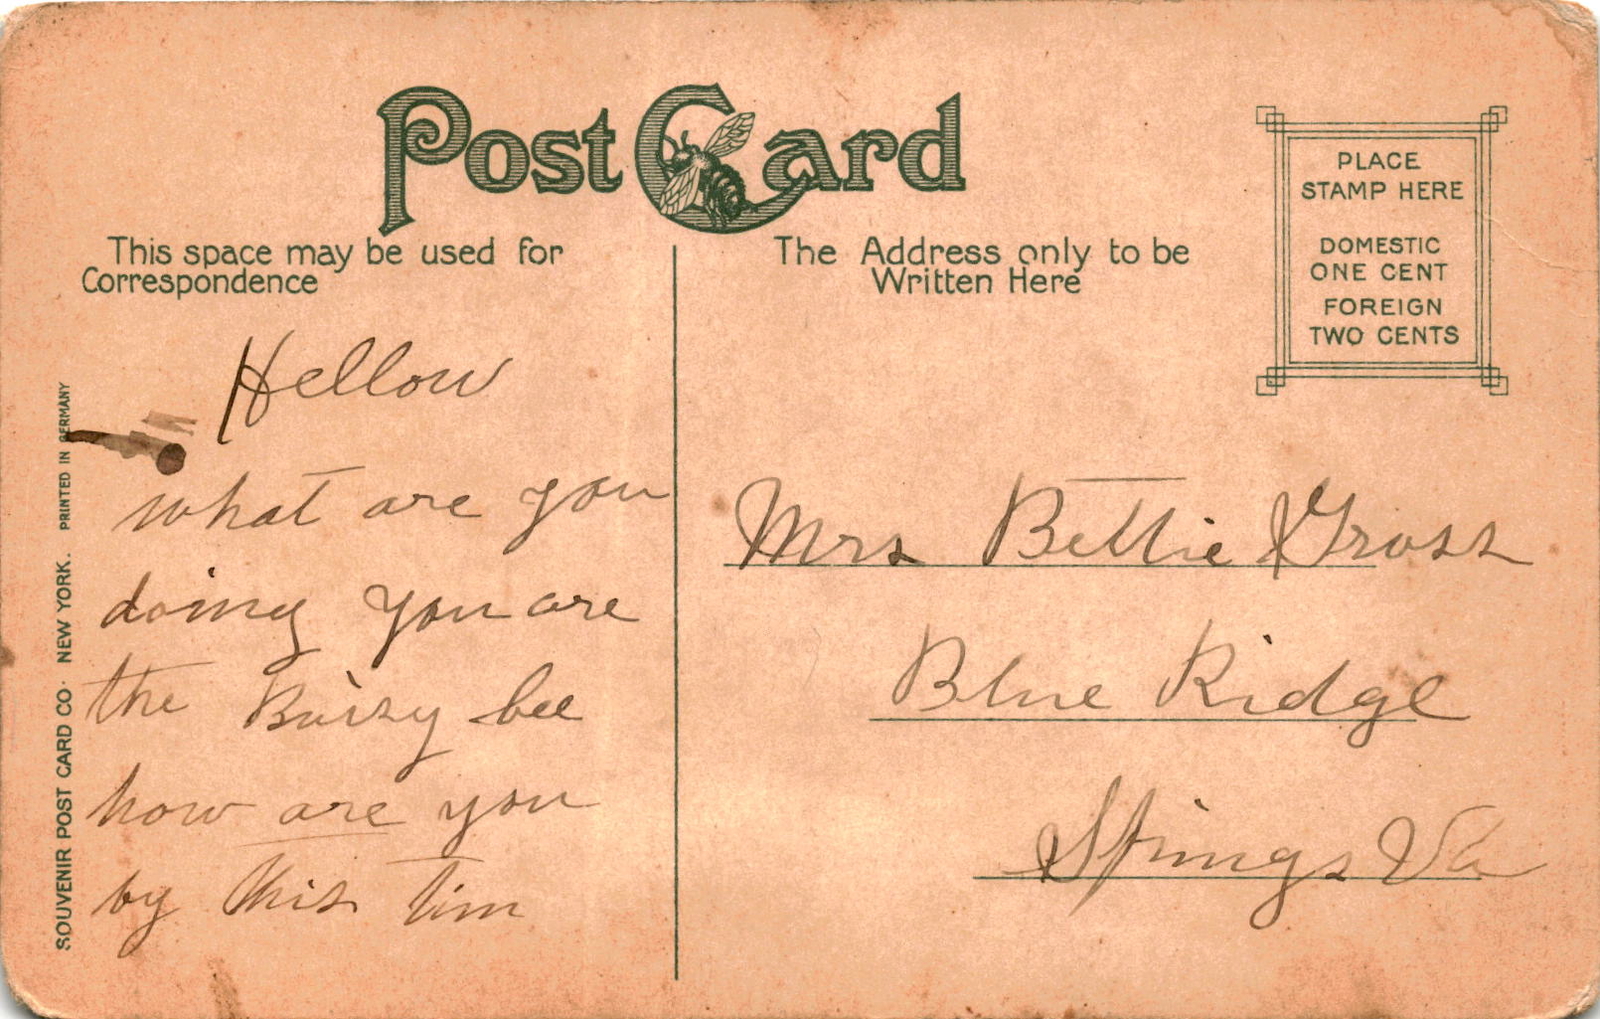 Post Card
This space may be used for
Correspondence
The Address only to be
Written Here
PLACE
STAMP HERE
DOMESTIC
ONE CENT
FOREIGN
TWO CENTS
Hellow
what are you
doing you are
the Buisy bee
how are you
by this tim
Mrs Bettie Gross
Blue Ridge
Springs Va
SOUVENIR POST CARD CO. NEW YORK. PRINTED IN GERMANY